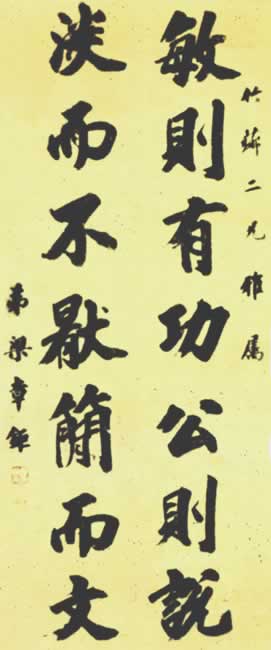 竹二兄雅属
敏則有功公則說
淡而不猒簡而文
弟梁章鉅